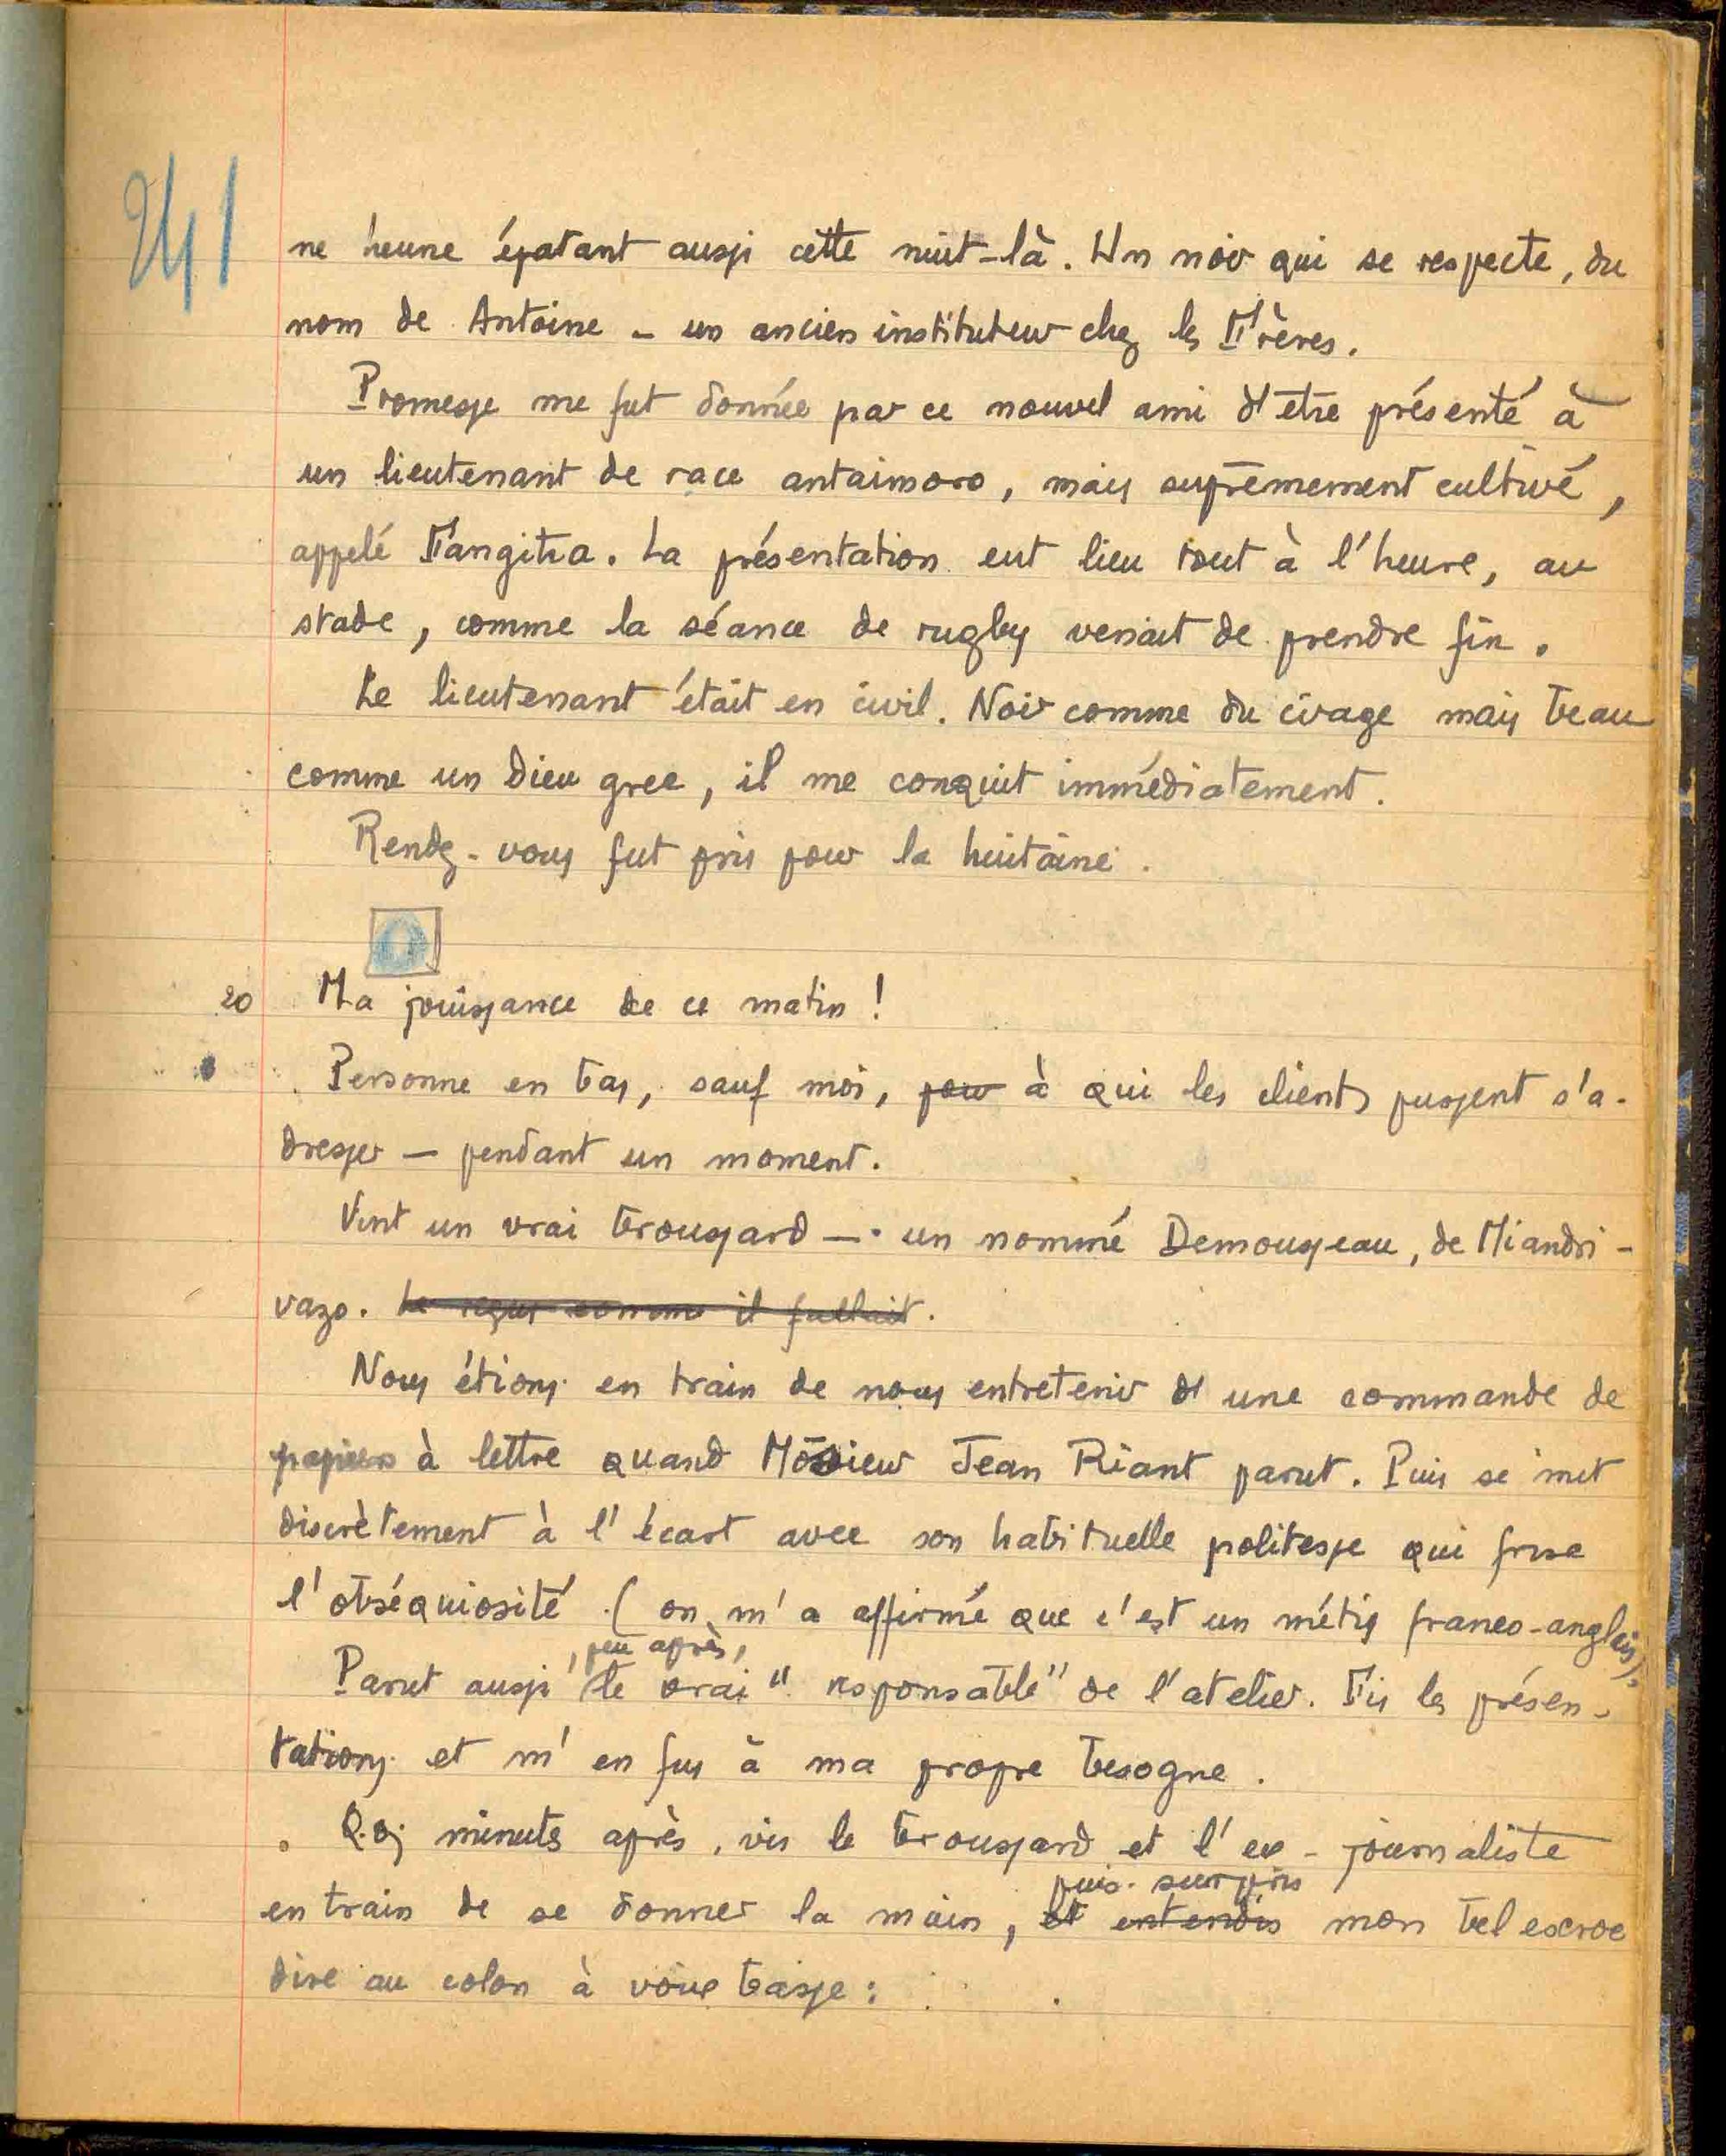 241
ne heune épatant aussi cette nuit-là. Un noir qui se respecte, du
nom de Antoine - un ancien instituteur chez les Frères.
Promesse me fut donnée par ce nouvel ami d'être présenté à
un lieutenant de race antaimoro, mais suprêmement cultivé,
appelé Fangitra. La présentation eut lieu tout à l'heure, au
stade, comme la séance de rugby venait de prendre fin.
Le lieutenant était en civil. Noir comme du cirage mais beau
comme un Dieu grec, il me conquit immédiatement.
Rendez-vous fut pris pour la huitaine.
20 Ma jouissance de ce matin !
Personne en bas, sauf moi, pour à qui les clients pussent s'a-
dresser — pendant un moment.
Vint un vrai broussard — un nommé Demousseau, de Miandri-
vazo. Le reçus comme il fallait.
Nous étions en train de nous entretenir d'une commande de
papiers à lettre quand Môsieur Jean Riant parut. Puis se met
discrètement à l'écart avec son habituelle politesse qui frise
l'obséquiosité (on m'a affirmé que c'est un métis franco-anglais).
, peu après,
Parut aussi le vrai "responsable" de l'atelier. Fis les présen-
tations et m'en fus à ma propre besogne.
Qqs minutes après, vis le broussard et l'ex-journaliste
puis surpris
en train de se donner la main, et entendis mon bel escroc
dire au colon à voix basse :